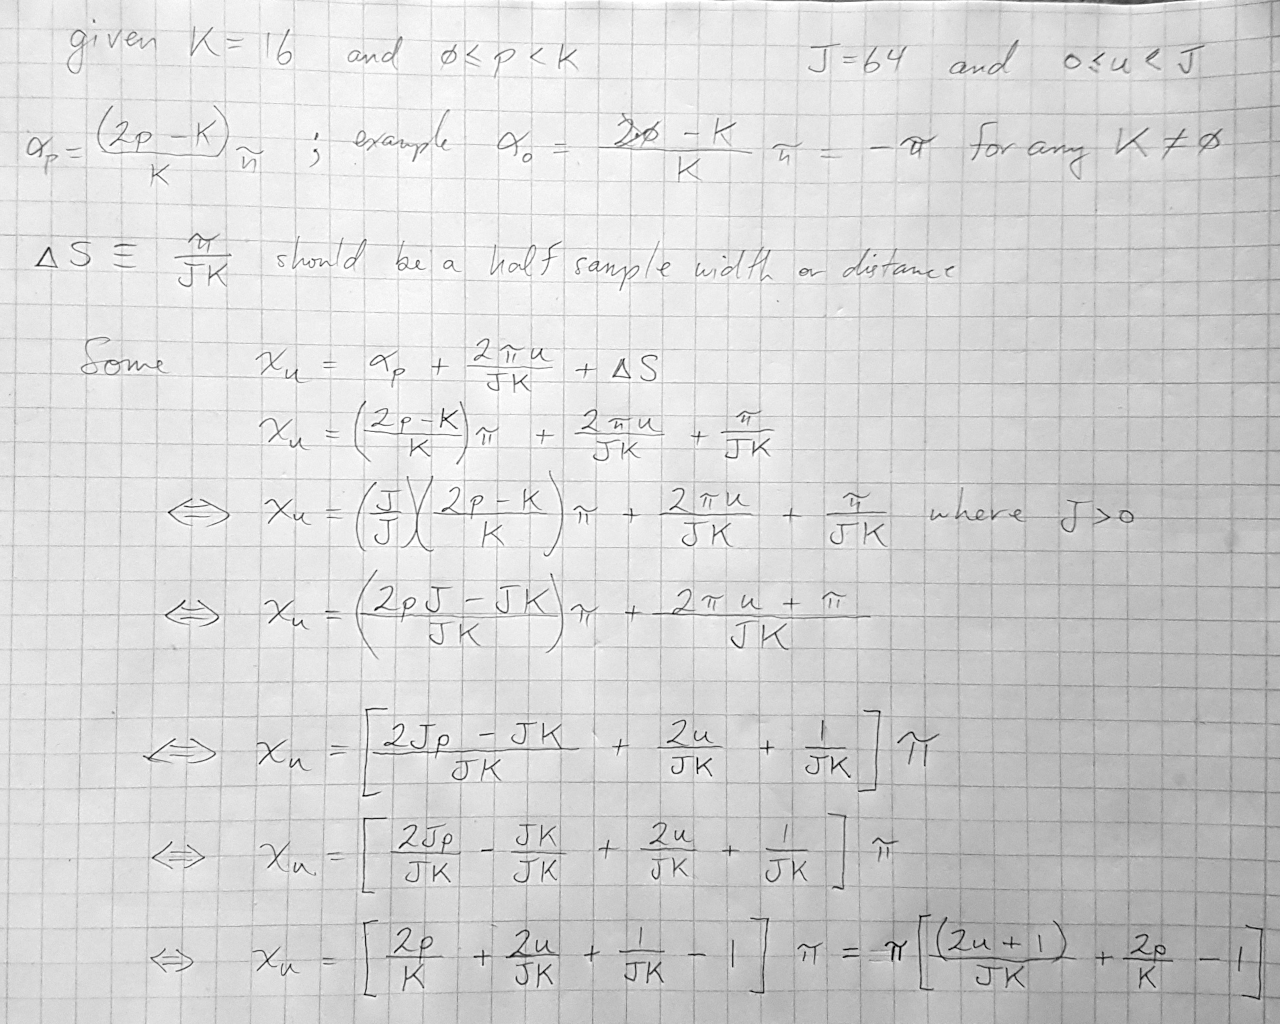 given K = 16 and ∅ ≤ p < K J = 64 and 0 ≤ u < J
α_p = (2p - K)/K π ; example α_0 = (2∅ - K)/K π = -π for any K ≠ ∅
ΔS ≡ π/JK should be a half sample width or distance
Some x_u = α_p + 2πu/JK + ΔS
x_u = ((2p - K)/K) π + 2πu/JK + π/JK
⇔ x_u = (J/J)((2p - K)/K) π + 2πu/JK + π/JK where J > 0
⇔ x_u = ((2pJ - JK)/JK) π + (2πu + π)/JK
⇔ x_u = [(2Jp - JK)/JK + 2u/JK + 1/JK] π
⇔ x_u = [2Jp/JK - JK/JK + 2u/JK + 1/JK] π
⇔ x_u = [2p/K + 2u/JK + 1/JK - 1] π = π[(2u + 1)/JK + 2p/K - 1]